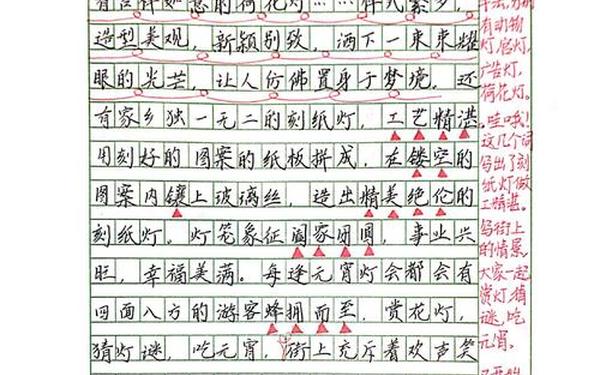 有吉祥如意的荷花灯……样式繁多，
造型美观，新颖别致，洒下一束束耀
眼的光芒，让人仿佛置身于梦境。还
有家乡独一无二的刻纸灯，工艺精湛。
用刻好的图案的纸板拼成，在镂空的
图案内镶上玻璃丝，造出精美绝伦的
刻纸灯。灯笼象征阖家团圆，事业兴
旺，幸福美满。每逢元宵灯会都会有
四面八方的游客蜂拥而至，赏花灯，
猜灯谜，吃元宵，街上充斥着欢声笑
有动物
灯，宫灯，
广告灯，
荷花灯。
哇哦！
这几个词
写出了刻
纸灯做
工精湛。
写街上
的情景，
大家一起
赏灯，猜
谜，吃
元宵。